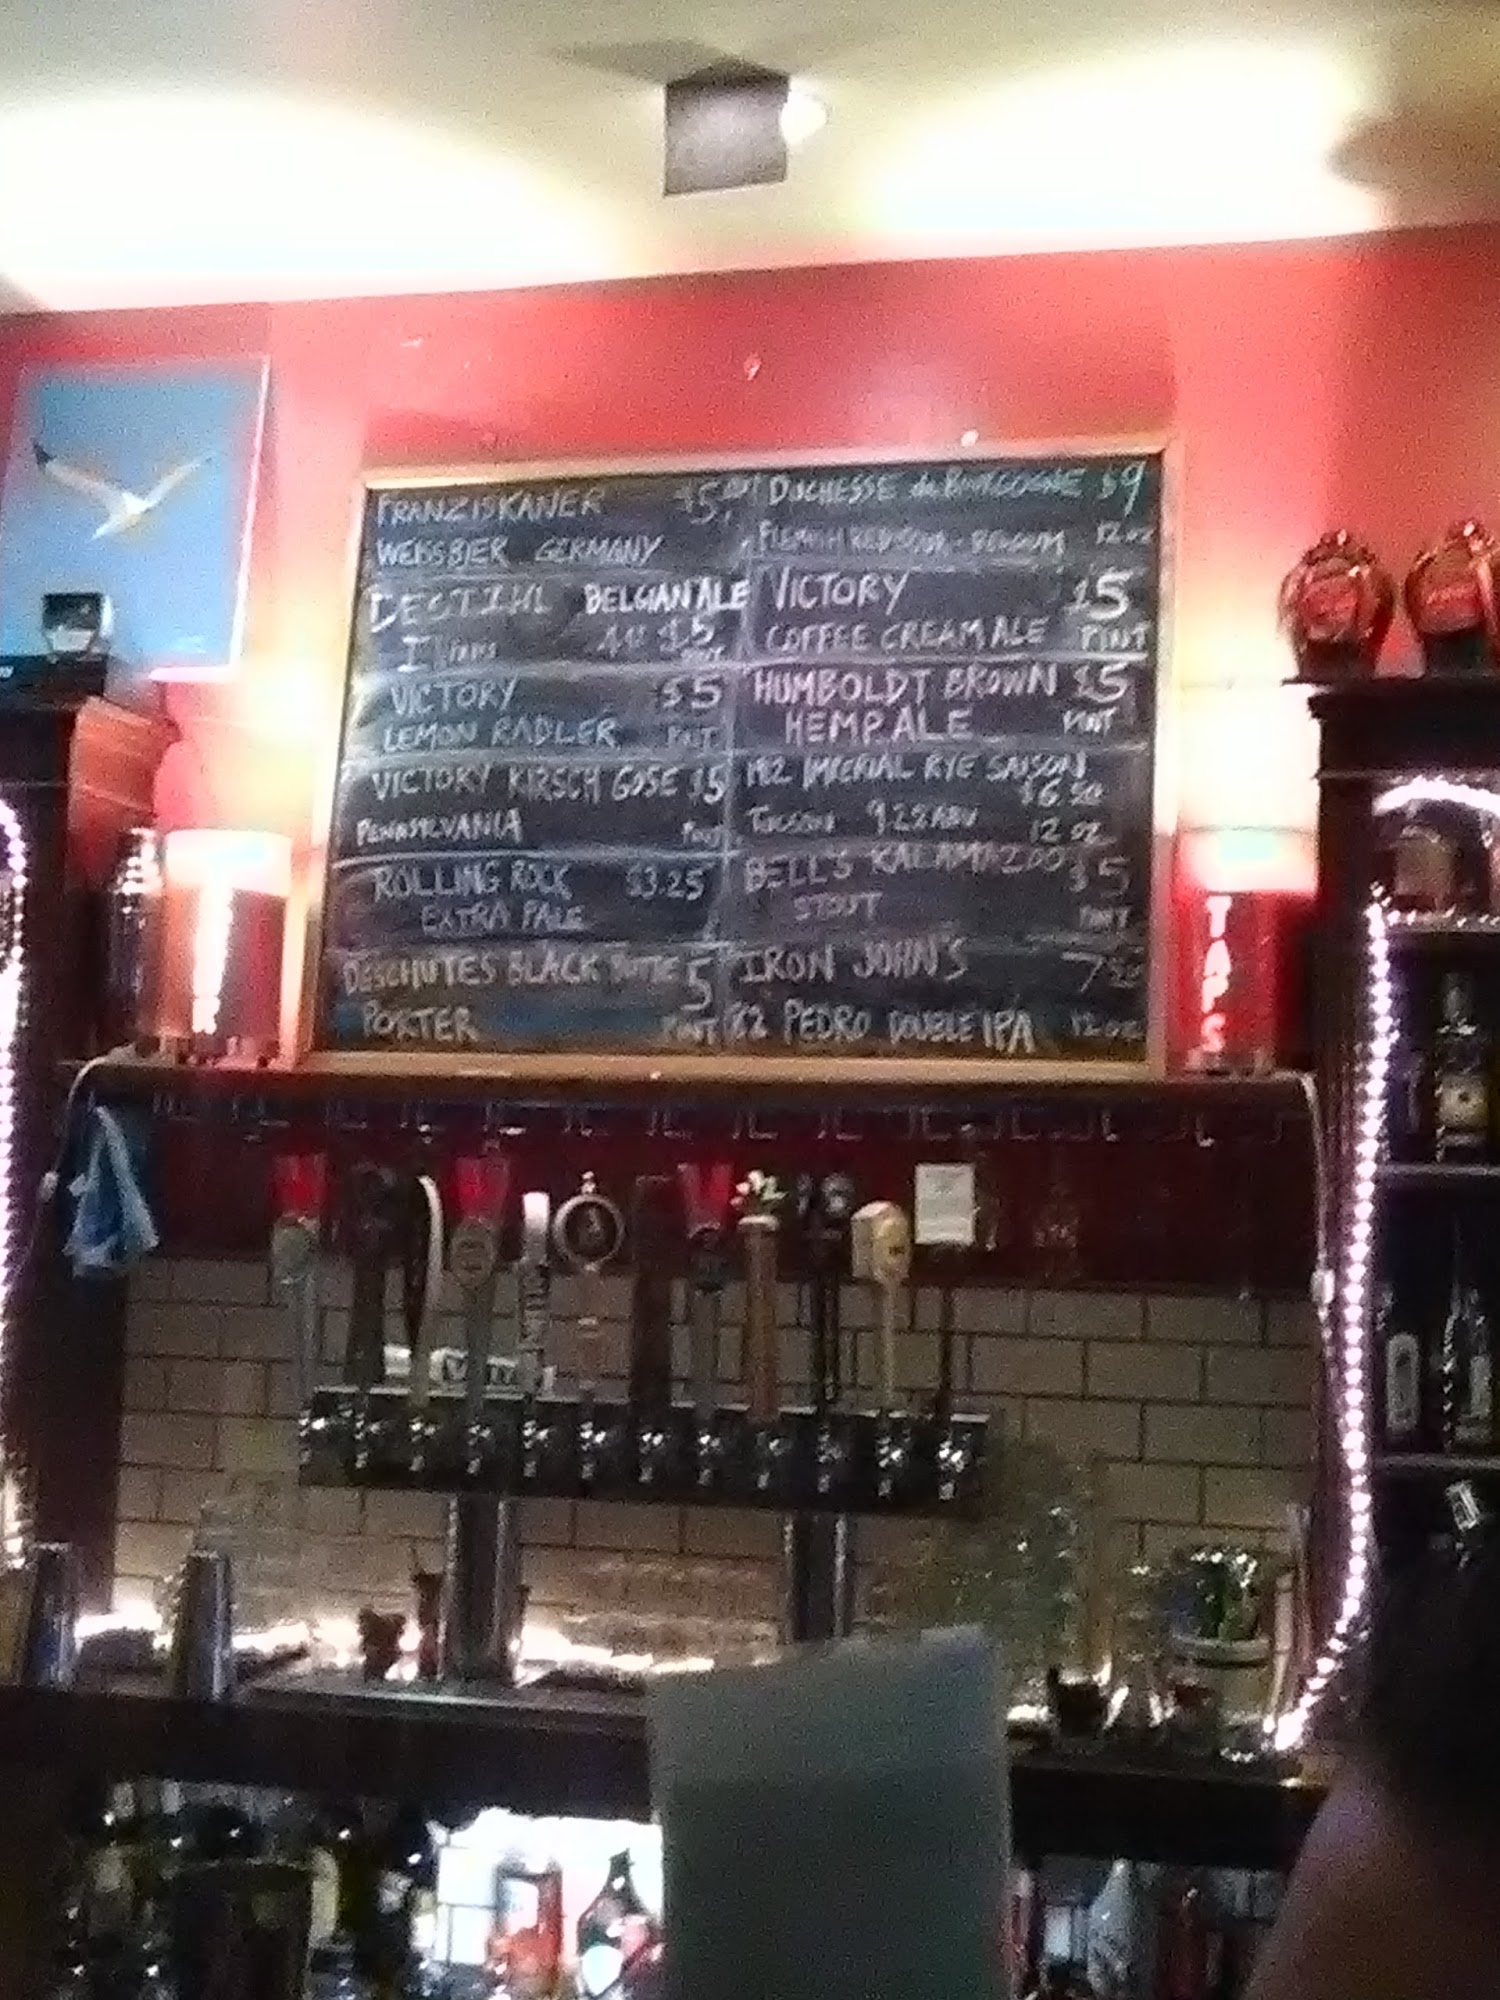 FRANZISKANER $5
WEISSBIER GERMANY
DESTIHL BELGIAN ALE
$5
VICTORY $5
LEMON RADLER PINT
VICTORY KIRSCH GOSE $5
PENNSYLVANIA PINT
ROLLING ROCK $3.25
EXTRA PALE
DESCHUTES BLACK BUTTE 5
PORTER PINT
DUCHESSE de BOURGOGNE $9
FLEMISH RED SOUR - BELGIUM 12 oz
VICTORY $5
COFFEE CREAM ALE PINT
HUMBOLDT BROWN $5
HEMP ALE PINT
IMPERIAL RYE SAISON
$6.50
TUCSON 9.2% ABV 12 oz
BELL'S KALAMAZOO $5
STOUT PINT
IRON JOHN'S 7.50
PEDRO DOUBLE IPA 12 oz
TAPS